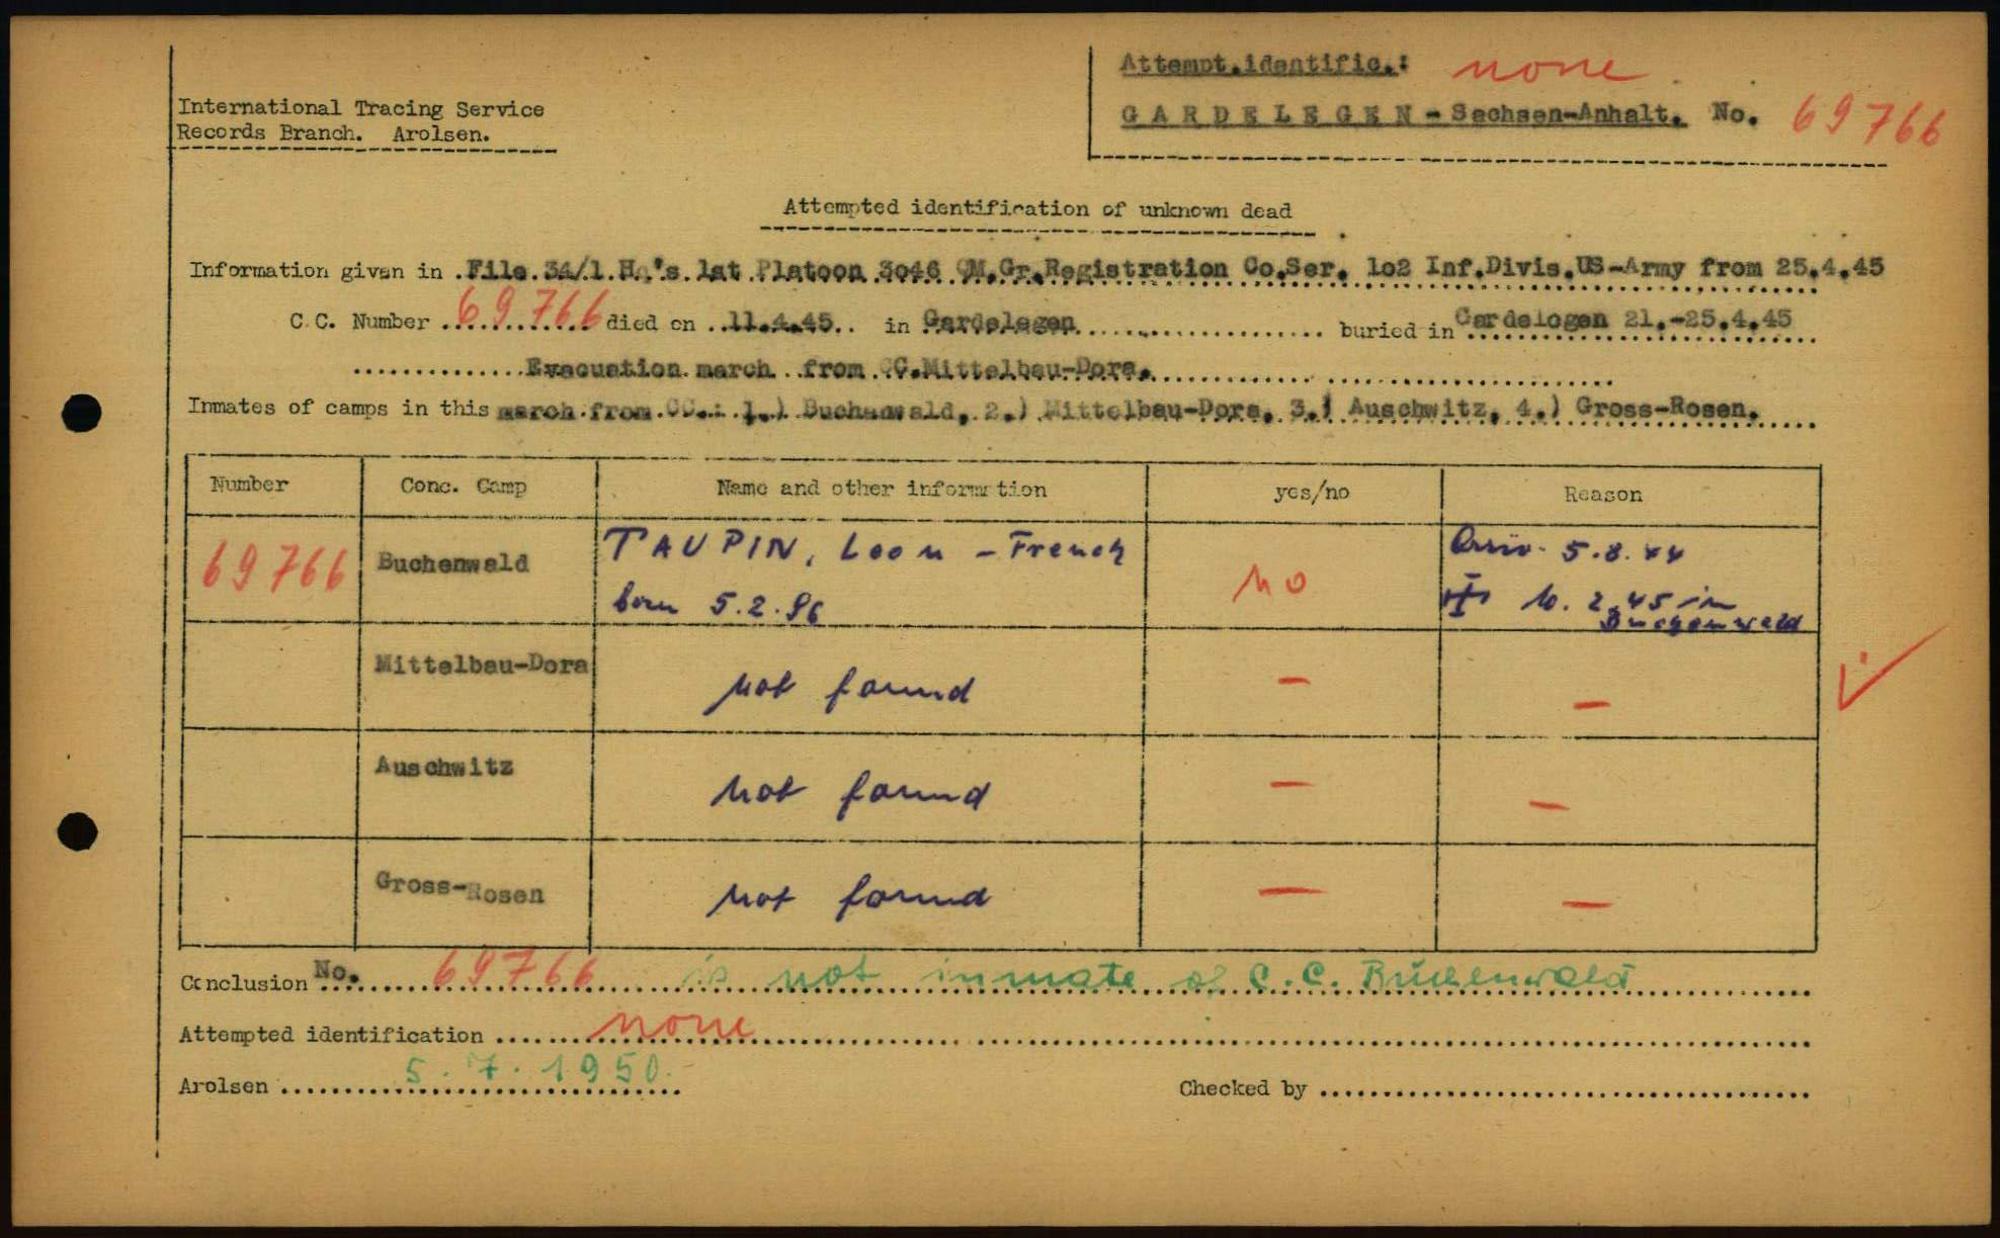 Attempt.identific.: none
International Tracing Service
Records Branch. Arolsen.
GARDELEGEN - Sachsen-Anhalt. No. 69766
Attempted identification of unknown dead
Information given in File 34/1 Hq's 1st Platoon 3o46 QM.Gr.Registration Co.Ser. 1o2 Inf.Divis.US-Army from 25.4.45
C.C. Number 69766 died on 11.4.45 in Gardelegen buried in Gardelegen 21.-25.4.45
Evacuation march from CC.Mittelbau-Dora.
Inmates of camps in this march from CC.: 1.) Buchenwald, 2.) Mittelbau-Dora, 3.) Auschwitz, 4.) Gross-Rosen.
Number Conc. Camp Name and other information yes/no Reason
69766 Buchenwald TAUPIN, Leon - French no Arriv. 5.8.44
born 5.2.96 10.2.45 in
Buchenwald
Mittelbau-Dora not found – –
Auschwitz not found – –
Gross-Rosen not found – –
Conclusion No. 69766 is not inmate of C.C. Buchenwald
Attempted identification none
Arolsen 5.7.1950. Checked by